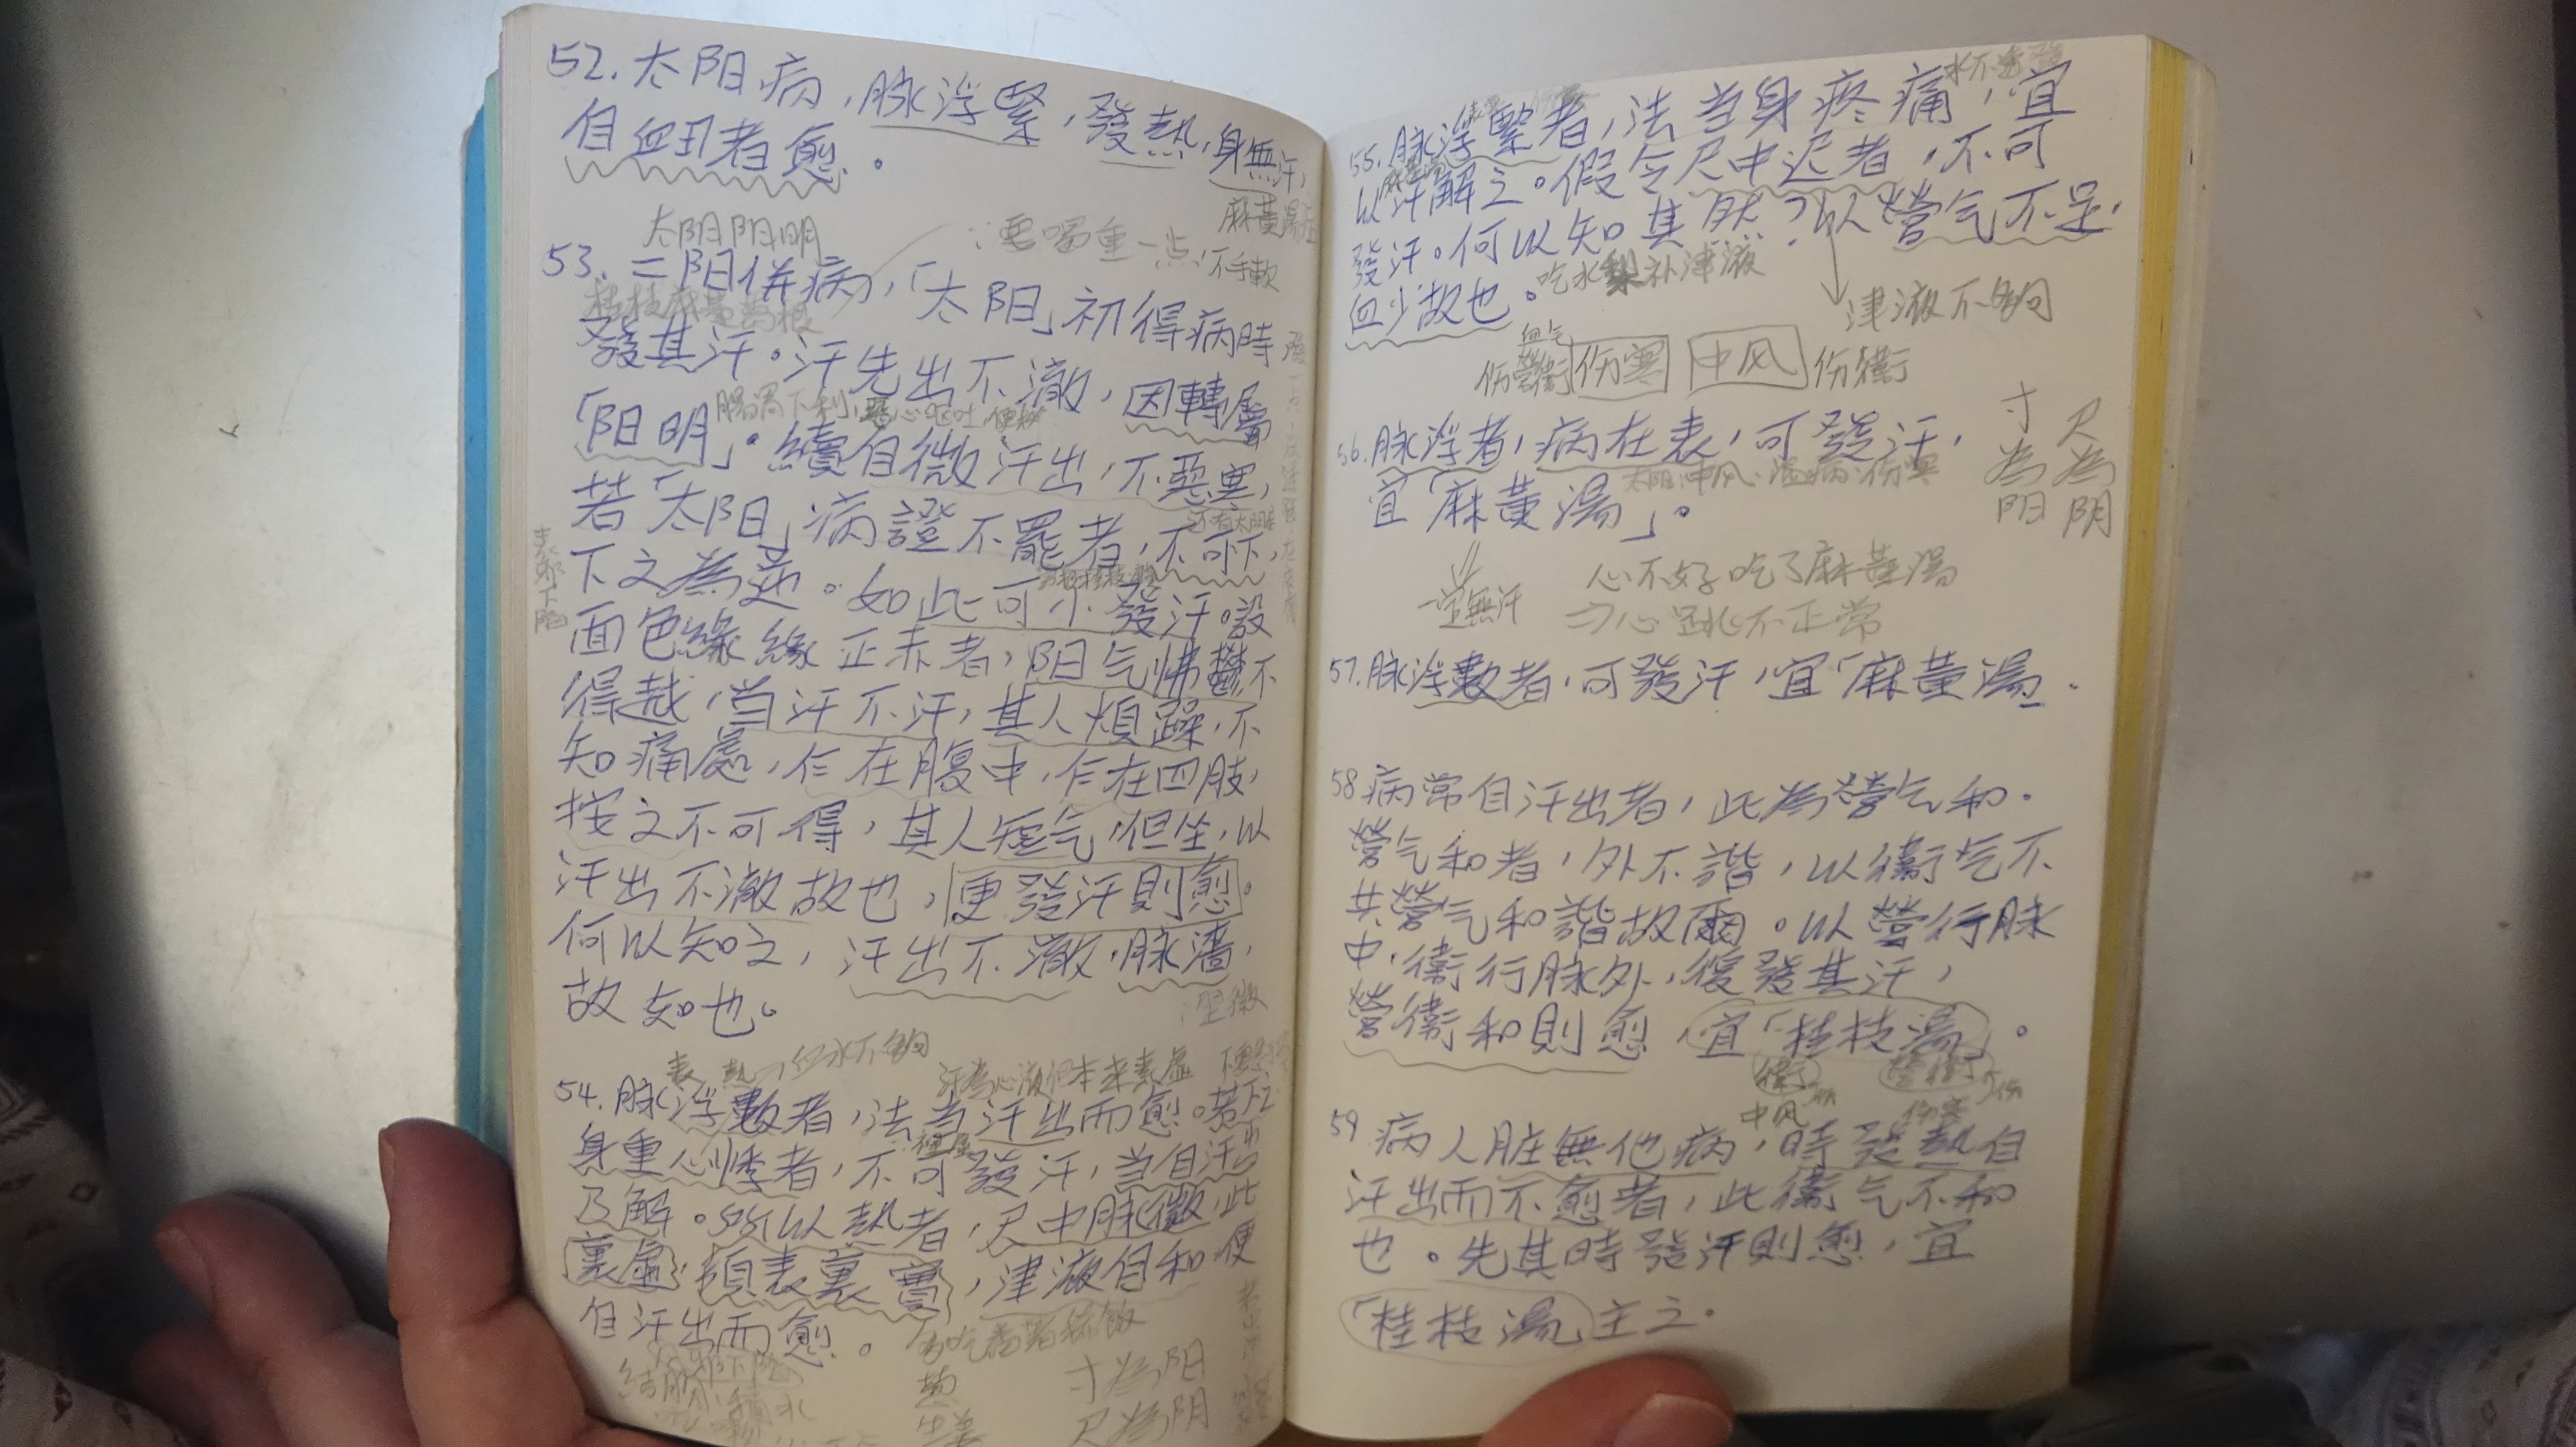 52. 太阳病，脉浮緊，發熱，身無汗，
自衄者愈。
麻黃湯症
太阳阳明
：要喝重一点，不手軟
53. 二阳併病，「太阳」初得病時
桂枝麻黃葛根
發其汗。汗先出不澈，因轉屬
腸胃下利，惡心嘔吐，便秘
「阳明」。續自微汗出，不惡寒，
若「太阳」病證不罷者，不可下，
还有太阳症
下之為逆。如此可小發汗。設
面色緣緣正赤者，阳气怫鬱不
得越，当汗不汗，其人煩躁，不
知痛處，乍在腹中，乍在四肢，
按之不可得，其人短气，但坐，以
汗出不澈故也，更發汗則愈。
何以知之，汗出不澈，脉濇，
故知也。
表 熱，血水不夠
汗為心液但本来表虛
54. 脉浮數者，法当汗出而愈。若下之
身重心悸者，不可發汗，当自汗出
裡虛
乃解。所以熱者，尺中脉微，此
裏虛，須表裏實，津液自和，便
自汗出而愈。
寸為阳
尺為阴
55. 脉浮緊者，法当身疼痛，宜
以汗解之。假令尺中迟者，不可
麻黃湯
發汗。何以知其然？以營气不足，
血少故也。
吃水梨补津液
津液不夠
血气
伤營衛 伤寒 中风 伤衛
56. 脉浮者，病在表，可發汗，
太阳：中风、溫病、伤寒
宜「麻黃湯」。
寸為阳
尺為阴
一定無汗
心不好吃了麻黃湯
⇒心跳不正常
57. 脉浮數者，可發汗，宜「麻黃湯」.
58 病常自汗出者，此為營气和.
營气和者，外不諧，以衛气不
共營气和諧故爾。以營行脉
中，衛行脉外，復發其汗，
營衛和則愈，宜「桂枝湯」。
衛伤
中风
營衛伤
伤寒
59 病人脏無他病，時發熱自
汗出而不愈者，此衛气不和
也。先其時發汗則愈，宜
「桂枝湯」主之.